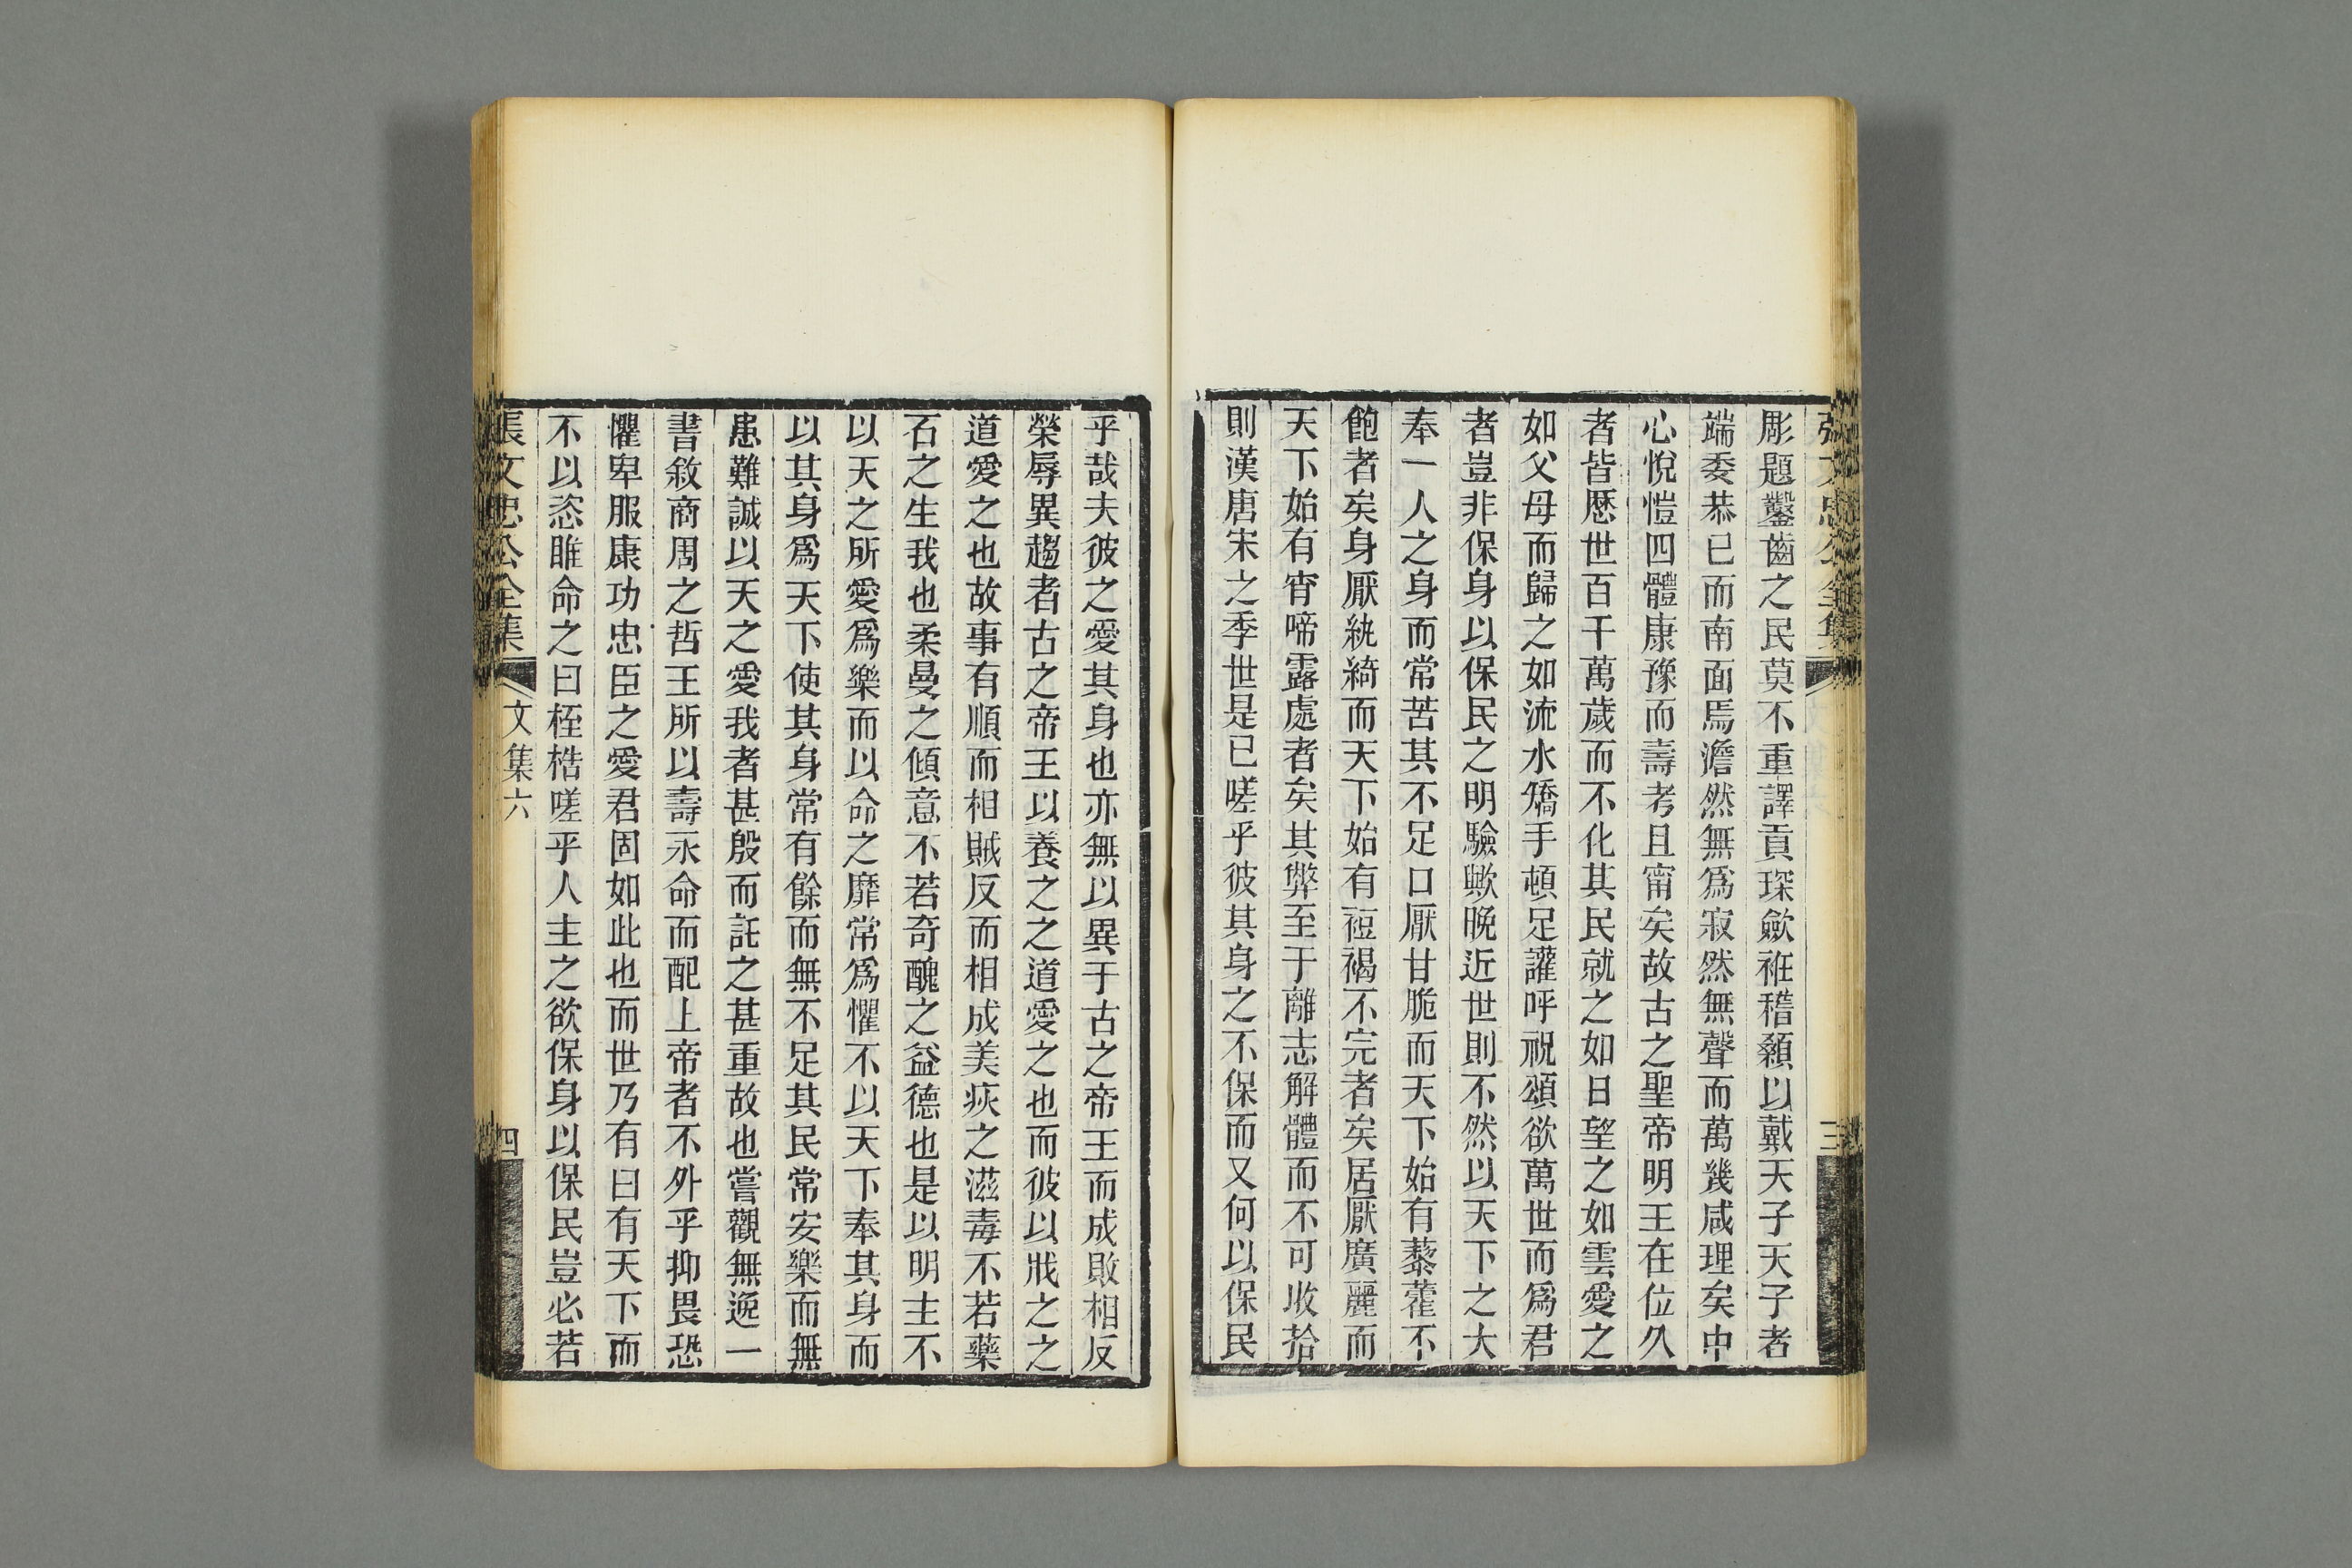 張文忠公全集
三
彫題鑿齒之民莫不重譯貢琛歛袵稽顙以戴天子天子者
端委恭已而南面焉澹然無爲寂然無聲而萬幾咸理矣中
心悅愷四體康豫而壽考且甯矣故古之聖帝明王在位久
者皆歷世百千萬歲而不化其民就之如日望之如雲愛之
如父母而歸之如流水矯手頓足讙呼祝頌欲萬世而爲君
者豈非保身以保民之明驗歟晚近世則不然以天下之大
奉一人之身而常苦其不足口厭甘脆而天下始有藜藿不
飽者矣身厭紈綺而天下始有裋褐不完者矣居厭廣麗而
天下始有窅啼露處者矣其弊至于離志解體而不可收拾
則漢唐宋之季世是已嗟乎彼其身之不保而又何以保民
乎哉夫彼之愛其身也亦無以異于古之帝王而成敗相反
榮辱異趨者古之帝王以養之之道愛之也而彼以戕之之
道愛之也故事有順而相賊反而相成美疢之滋毒不若藥
石之生我也柔曼之傾意不若奇醜之益德也是以明主不
以天之所愛爲樂而以命之靡常爲懼不以天下奉其身而
以其身爲天下使其身常有餘而無不足其民常安樂而無
患難誠以天之愛我者甚殷而託之甚重故也嘗觀無逸一
書敘商周之哲王所以壽永命而配上帝者不外乎抑畏恐
懼卑服康功忠臣之愛君固如此也而世乃有曰有天下而
不以恣睢命之曰桎梏嗟乎人主之欲保身以保民豈必若
張文忠公全集
文集六
四